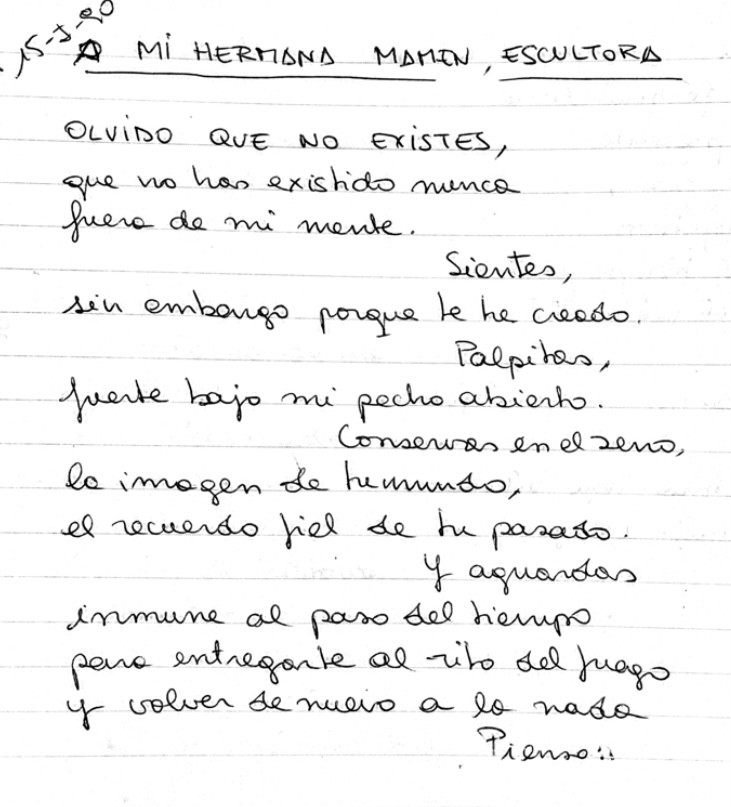 15-J-90
A MI HERMANA MAMEN, ESCULTORA
OLVIDO QUE NO EXISTES,
que no has existido nunca
fuera de mi mente.
Sientes,
sin embargo porque te he creado.
Palpitas,
fuerte bajo mi pecho abierto.
Conservas en el seno,
la imagen de tu mundo,
el recuerdo fiel de tu pasado.
Y aguardas
inmune al paso del tiempo
para entregarte al rito del fuego
y volver de nuevo a la nada
Pienso:.